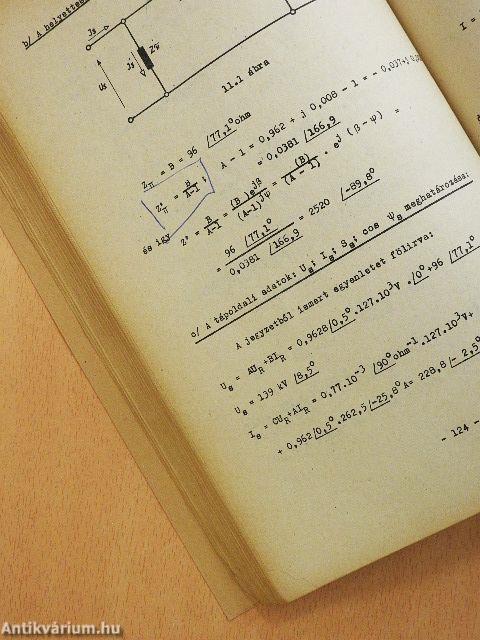 b/ A helyettes
Js
Us
J's
Z'π
11.1 ábra
Zπ = B = 96 /77,1° ohm
A - 1 = 0,962 + j 0,008 - 1 = - 0,037+j 0,0
= 0,0381 /166,9
Z'π = B/A-1 ;
és így
Z' = B/A-1 = (B)e^jβ/(A-1)^jψ = (B)/(A - 1) . e^j (β-ψ) =
= 96 /77,1°/0,0381 /166,9 = 2520 /-89,8°
c/ A tápoldali adatok: Us; Is; Ss; cos φs meghatározása:
A jegyzetből ismert egyenletet fölírva:
Us = AUR+BIR = 0,9628/0,5°.127.10³V . /0°+96 /77,1°
Us = 139 kV /8,5°
Is = CUR+AIR = 0,77.10⁻³ /90°ohm⁻¹.127.10³V+
+ 0,962/0,5°.262,5/-25,8° A= 228,8/- 2,5°
- 124 -
I =
Antikvárium.hu